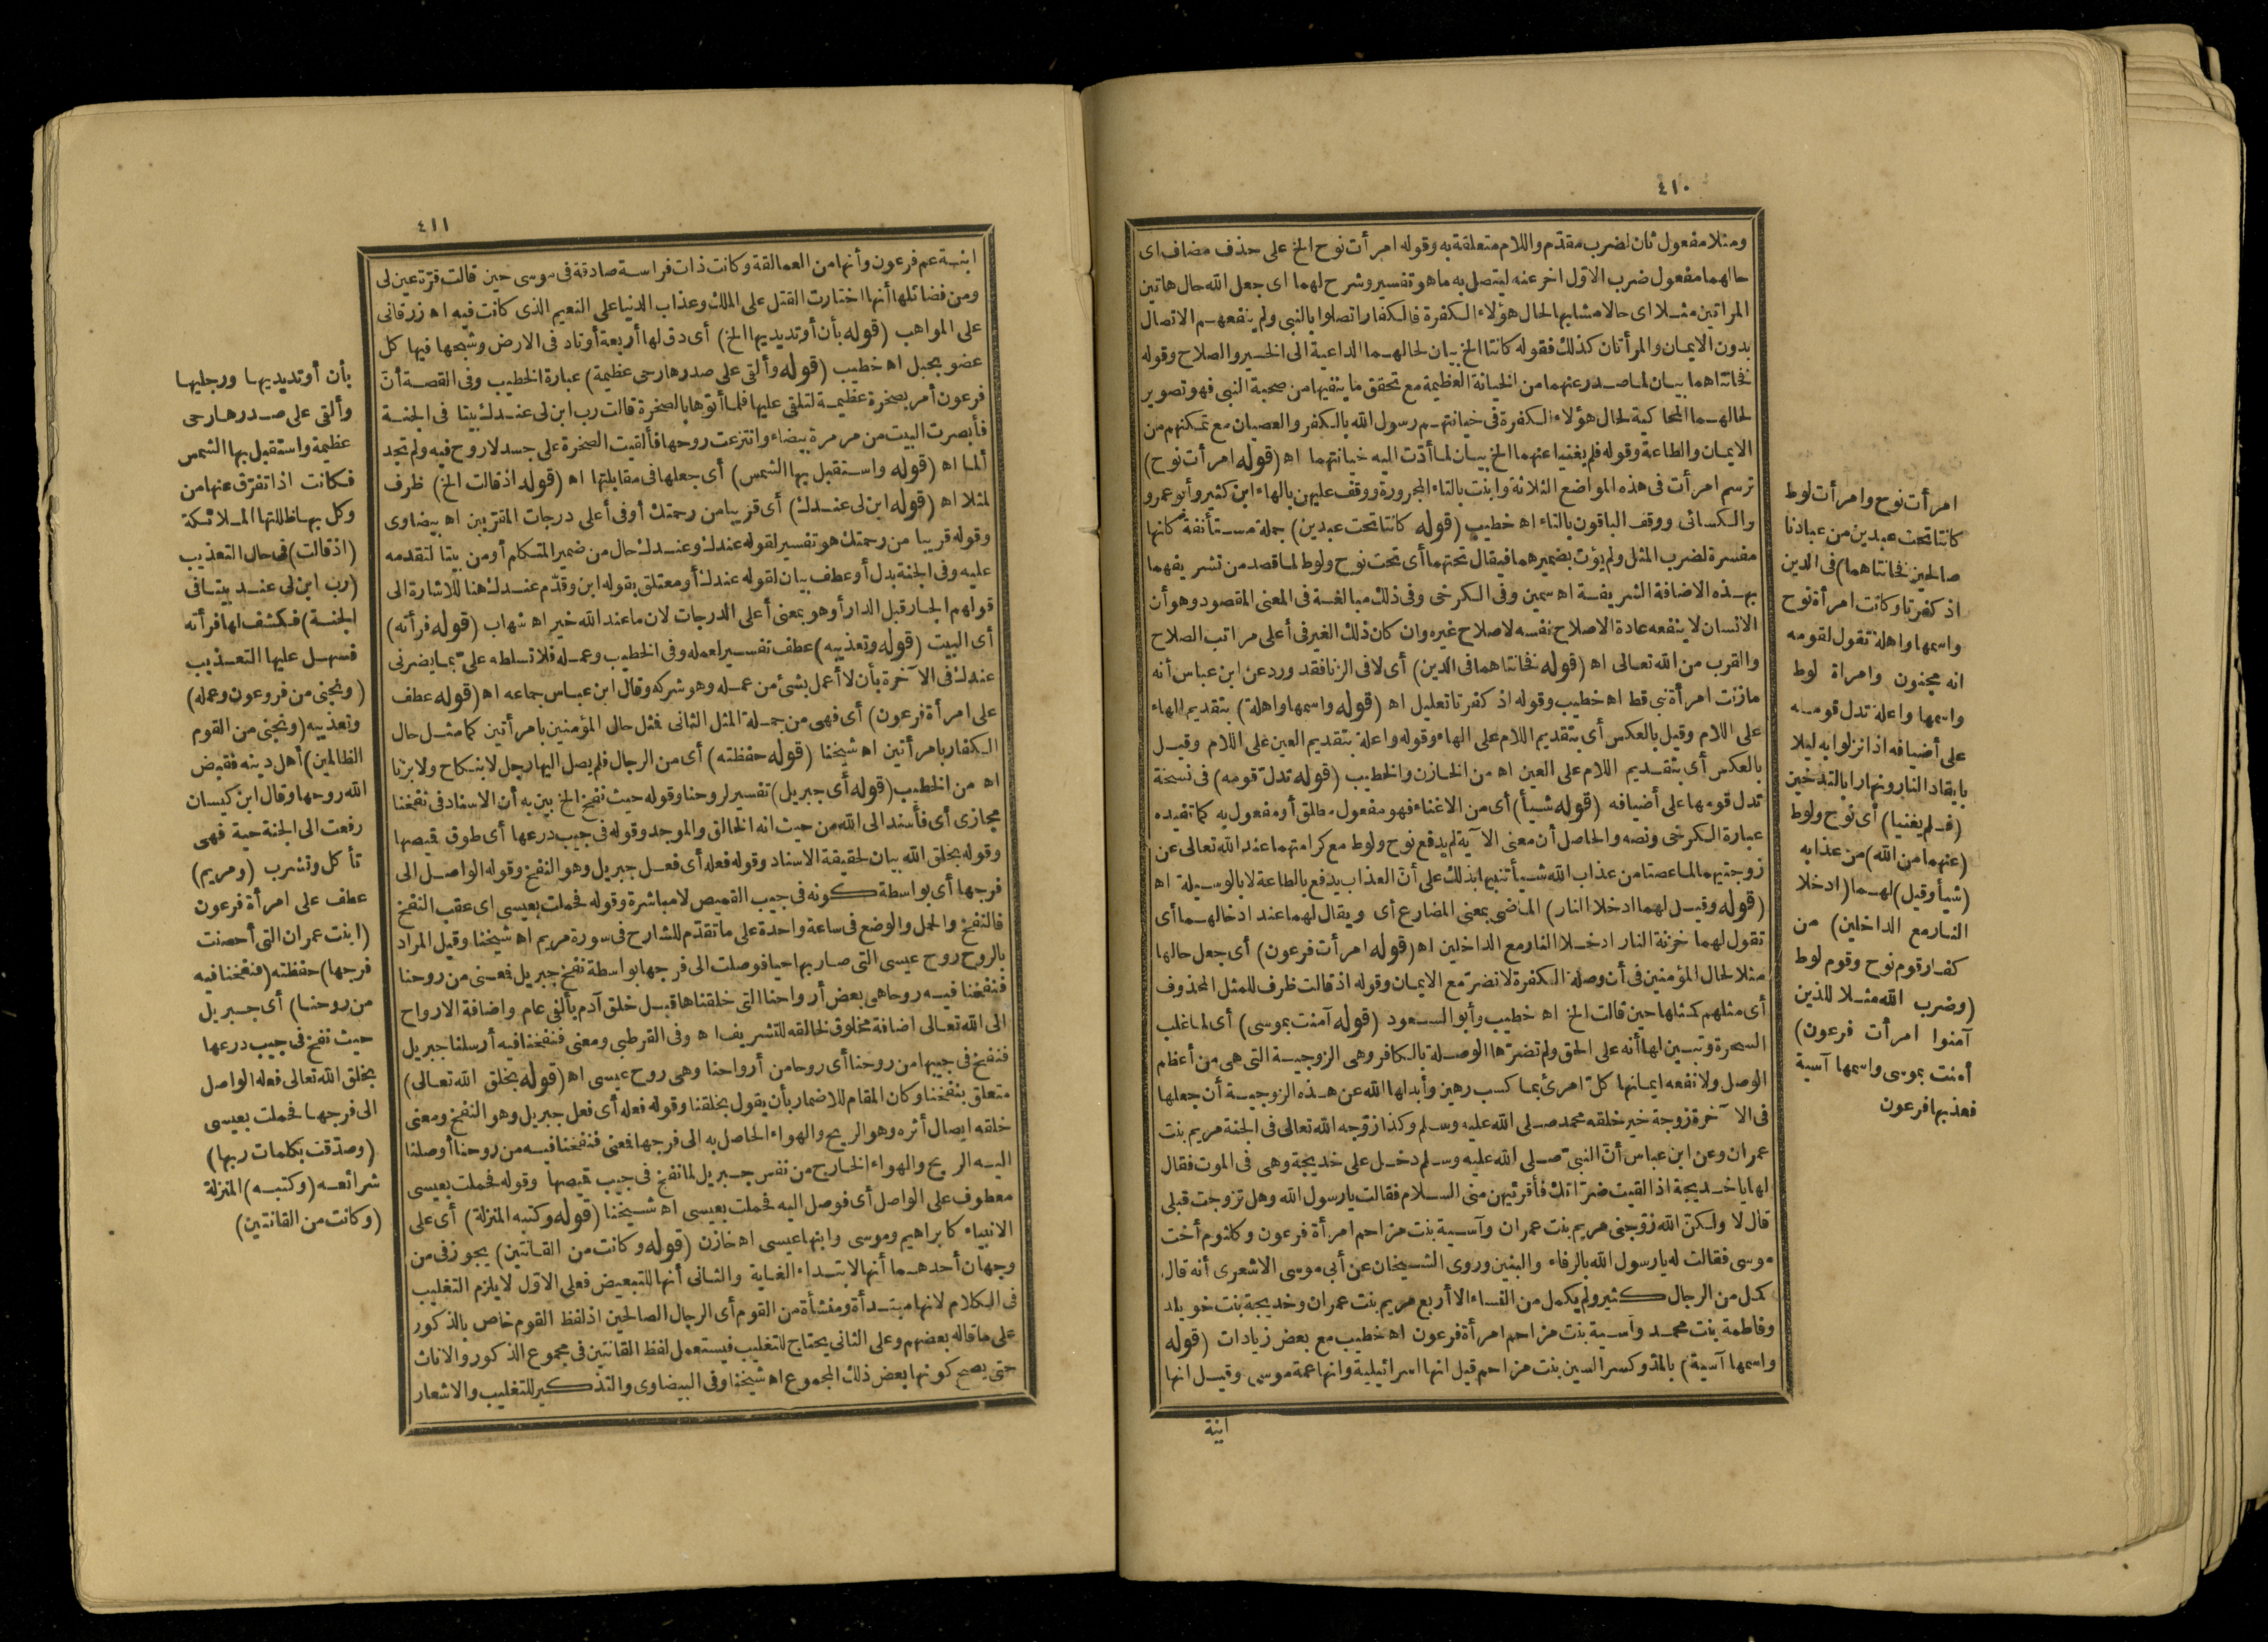 ٤١٠
ومثلا مفعول ثان لضرب مقدّم واللام متعلقة به وقوله امرأت نوح الخ على حذف مضاف اى
حالهما مفعول ضرب الاوّل اخر عنه ليتصل به ما هو تفسير وشرح لهما اى جعل الله حال هاتين
المراتين مثلا اى حالا مشابها لحال هؤلاء الكفرة فالكفار اتصلوا بالنبى ولم ينفعهم الاتصال
بدون الايمان والمرأتان كذلك فقوله كانتا الخ بيان لحالهما الداعية الى الخير والصلاح وقوله
فخانتاهما بيان لما صدر عنهما من الخيانة العظيمة مع تحقق ما ينفيها من صحبة النبى فهو تصوير
لحالهما المحاكية لحال هؤلاء الكفرة فى خيانتهم رسول الله بالكفر والعصيان مع تمكنهم من
الايمان والطاعة وقوله فلم يغنيا عنهما الخ بيان لما أدّت اليه خيانتهما اه (قوله امرأت نوح)
ترسم امرأت فى هذه المواضع الثلاثة وابنت بالتاء المجرورة ووقف عليهن بالهاء ابن كثير وأبو عمرو
والكسائى ووقف الباقون بالتاء اه خطيب (قوله كانتا تحت عبدين) جملة مستأنفة كانها
مفسرة لضرب المثل ولم يؤت بضميرهما فيقال تحتهما أى تحت نوح ولوط لما قصد من تشريفهما
بهذه الاضافة الشريفة اه سمين وفى الكرخى وفى ذلك مبالغة فى المعنى المقصود وهو أن
الانسان لا ينفعه عادة الاصلاح نفسه لاصلاح غيره وان كان ذلك الغير فى أعلى مراتب الصلاح
والقرب من الله تعالى اه (قوله فخانتاهما فى الدين) أى لا فى الزنا فقد ورد عن ابن عباس أنه
ما زنت امرأة نبى قط اه خطيب وقوله اذ كفرتا تعليل اه (قوله واسمها واهلة) بتقديم الهاء
على اللام وقيل بالعكس أى بتقديم اللام على الهاء وقوله واعلة بتقديم العين على اللام وقيل
بالعكس أى بتقديم اللام على العين اه من الخازن والخطيب (قوله تدلّ قومه) فى نسخة
تدل قومها على أضيافه (قوله شيأ) أى من الاغناء فهو مفعول مطلق أو مفعول به كما تفيده
عبارة الكرخى ونصه والحاصل أن معنى الآية لم يدفع نوح ولوط مع كرامتهما عند الله تعالى عن
زوجتيهما لما عصتا من عذاب الله شيأ تنبيها بذلك على أنّ العذاب يدفع بالطاعة لا بالوسيلة اه
(قوله وقيل لهما ادخلا النار) الماضى بمعنى المضارع أى ويقال لهما عند ادخالهما أى
تقول لهما خزنة النار ادخلا النار مع الداخلين اه (قوله امرأت فرعون) أى جعل حالها
مثلا لحال المؤمنين فى أن وصلة الكفرة لا تضرّ مع الايمان وقوله اذ قالت ظرف للمثل المحذوف
أى مثلهم كمثلها حين قالت الخ اه خطيب وأبو السعود (قوله آمنت بموسى) أى لما غلب
السحرة وتبين لها أنه على الحق ولم تضرّها الوصلة بالكافر وهى الزوجية التى هى من أعظم
الوصل ولا نفعه ايمانها كلّ امرئ بما كسب رهين وأبدلها الله عن هذه الزوجية أن جعلها
فى الآخرة زوجة خير خلقه محمد صلى الله عليه وسلم وكذا زوّجه الله تعالى فى الجنة مريم بنت
عمران وعن ابن عباس أنّ النبىّ صلى الله عليه وسلم دخل على خديجة وهى فى الموت فقال
لها يا خديجة اذا لقيت ضرّاتك فأقرئيهن منى السلام فقالت يا رسول الله وهل تزوجت قبلى
قال لا ولكنّ الله زوّجنى مريم بنت عمران وآسية بنت مزاحم امرأة فرعون وكلثوم أخت
موسى فقالت له يا رسول الله بالرفاء والبنين وروى الشيخان عن أبى موسى الاشعرى أنه قال
كمل من الرجال كثير ولم يكمل من النساء الا أربع مريم بنت عمران وخديجة بنت خويلد
وفاطمة بنت محمد وآسية بنت مزاحم امرأة فرعون اه خطيب مع بعض زيادات (قوله
واسمها آسية) بالمدّ وكسر السين بنت مزاحم قيل انها اسرائيلية وانها عمة موسى وقيل انها
ابنة
امرأت نوح وامرأت لوط
كانتا تحت عبدين من عبادنا
صالحين فخانتاهما) فى الدين
اذ كفرتا وكانت امرأة نوح
واسمها واهلة تقول لقومه
انه مجنون وامراة لوط
واسمها واعلة تدل قومه
على أضيافه اذا نزلوا به ليلا
بايقاد النار ونهارا بالتدخين
(فلم يغنيا) أى نوح ولوط
(عنهما من الله) من عذابه
(شيأ وقيل) لهما (ادخلا
النار مع الداخلين) من
كفار قوم نوح وقوم لوط
(وضرب الله مثلا للذين
آمنوا امرأت فرعون)
أمنت بموسى واسمها آسية
فعذبها فرعون
٤١١
ابنة عم فرعون وأنها من العمالقة وكانت ذات فراسة صادقة فى موسى حين قالت قرّة عين لى
ومن فضائلها أنها اختارت القتل على الملك وعذاب الدنيا على النعيم الذى كانت فيه اه زرقانى
على المواهب (قوله بأن أوتد يديها الخ) أى دق لها أربعة أوتاد فى الارض وشبحها فيها كل
عضو بحبل اه خطيب (قوله وألقى على صدرها رحى عظيمة) عبارة الخطيب وفى القصة أنّ
فرعون أمر بصخرة عظيمة لتلقى عليها فلما أتوها بالصخرة قالت رب ابن لى عندك بيتا فى الجنة
فأبصرت البيت من مرمرة بيضاء وانتزعت روحها فألقيت الصخرة على جسد لا روح فيه ولم تجد
ألما اه (قوله واستقبل بها الشمس) أى جعلها فى مقابلتها اه (قوله اذ قالت الخ) ظرف
لمثلا اه (قوله ابن لى عندك) أى قريبا من رحمتك أو فى أعلى درجات المقرّبين اه بيضاوى
وقوله قريبا من رحمتك هو تفسير لقوله عندك وعندك حال من ضمير المتكلم أو من بيتا لتقدمه
عليه وفى الجنة بدل أو عطف بيان لقوله عندك أو متعلق بقوله ابن وقدّم عندك هنا للاشارة الى
قولهم الجار قبل الدار أو هو بمعنى أعلى الدرجات لان ما عند الله خير اه شهاب (قوله فرأته)
أى البيت (قوله وتعذيبه) عطف تفسير لعمله وفى الخطيب وعمله فلا تسلطه علىّ بما يضرنى
عندك فى الآخرة بأن لا أعمل بشئ من عمله وهو شركه وقال ابن عباس جماعه اه (قوله عطف
على امرأة فرعون) أى فهى من جملة المثل الثانى فمثل حال المؤمنين بامرأتين كما مثل حال
الكفار بامرأتين اه شيخنا (قوله حفظته) أى من الرجال فلم يصل اليها رجل لا بنكاح ولا بزنا
اه من الخطيب (قوله أى جبريل) تفسير لروحنا وقوله حيث نفخ الخ بين به أن الاسناد فى نفخنا
مجازى أى فأسند الى الله من حيث انه الخالق والموجد وقوله فى جيب درعها أى طوق قميصها
وقوله بخلق الله بيان لحقيقة الاسناد وقوله فعله أى فعل جبريل وهو النفخ وقوله الواصل الى
فرجها أى بواسطة كونه فى جيب القميص لا مباشرة وقوله فحملت بعيسى اى عقب النفخ
فالنفخ والحمل والوضع فى ساعة واحدة على ما تقدّم للشارح فى سورة مريم اه شيخنا وقيل المراد
بالروح روح عيسى التى صار بها حيا فوصلت الى فرجها بواسطة نفخ جبريل فمعنى من روحنا
فنفخنا فيه روحا هى بعض أرواحنا التى خلقناها قبل خلق آدم بألفى عام واضافة الارواح
الى الله تعالى اضافة مخلوق لخالقه للتشريف اه وفى القرطبى ومعنى فنفخنا فيه أرسلنا جبريل
فنفخ فى جيبها من روحنا أى روحا من أرواحنا وهى روح عيسى اه (قوله بخلق الله تعالى)
متعلق بنفخنا وكان المقام للاضمار بأن يقول بخلقنا وقوله فعله أى فعل جبريل وهو النفخ ومعنى
خلقه ايصال أثره وهو الريح والهواء الحاصل به الى فرجها فمعنى فنفخنا فيه من روحنا أوصلنا
اليه الريح والهواء الخارج من نفس جبريل لما نفخ فى جيب قميصها وقوله فحملت بعيسى
معطوف على الواصل أى فوصل اليه فحملت بعيسى اه شيخنا (قوله وكتبه المنزلة) أى على
الانبياء كابراهيم وموسى وابنها عيسى اه خازن (قوله وكانت من القانتين) يجوز فى من
وجهان أحدهما أنها لابتداء الغاية والثانى أنها للتبعيض فعلى الاوّل لا يلزم التغليب
فى الكلام لانها مبتدأة ومنشأة من القوم أى الرجال الصالحين اذ لفظ القوم خاص بالذكور
على ما قاله بعضهم وعلى الثانى يحتاج للتغليب فيستعمل لفظ القانتين فى مجموع الذكور والاناث
حتى يصح كونها بعض ذلك المجموع اه شيخنا وفى البيضاوى والتذكير للتغليب والاشعار
بأن أوتد يديها ورجليها
وألقى على صدرها رحى
عظيمة واستقبل بها الشمس
فكانت اذا تفرّق عنها من
وكل بها ظللتها الملائكة
(اذ قالت) فى حال التعذيب
(رب ابن لى عندك بيتا فى
الجنة) فكشف لها فرأته
فسهل عليها التعذيب
(ونجنى من فرعون وعمله)
وتعذيبه (ونجنى من القوم
الظالمين) أهل دينه فقبض
الله روحها وقال ابن كيسان
رفعت الى الجنة حية فهى
تأكل وتشرب (ومريم)
عطف على امرأة فرعون
(ابنت عمران التى أحصنت
فرجها) حفظته (فنفخنا فيه
من روحنا) أى جبريل
حيث نفخ فى جيب درعها
بخلق الله تعالى فعله الواصل
الى فرجها فحملت بعيسى
(وصدّقت بكلمات ربها)
شرائعه (وكتبه) المنزلة
(وكانت من القانتين)